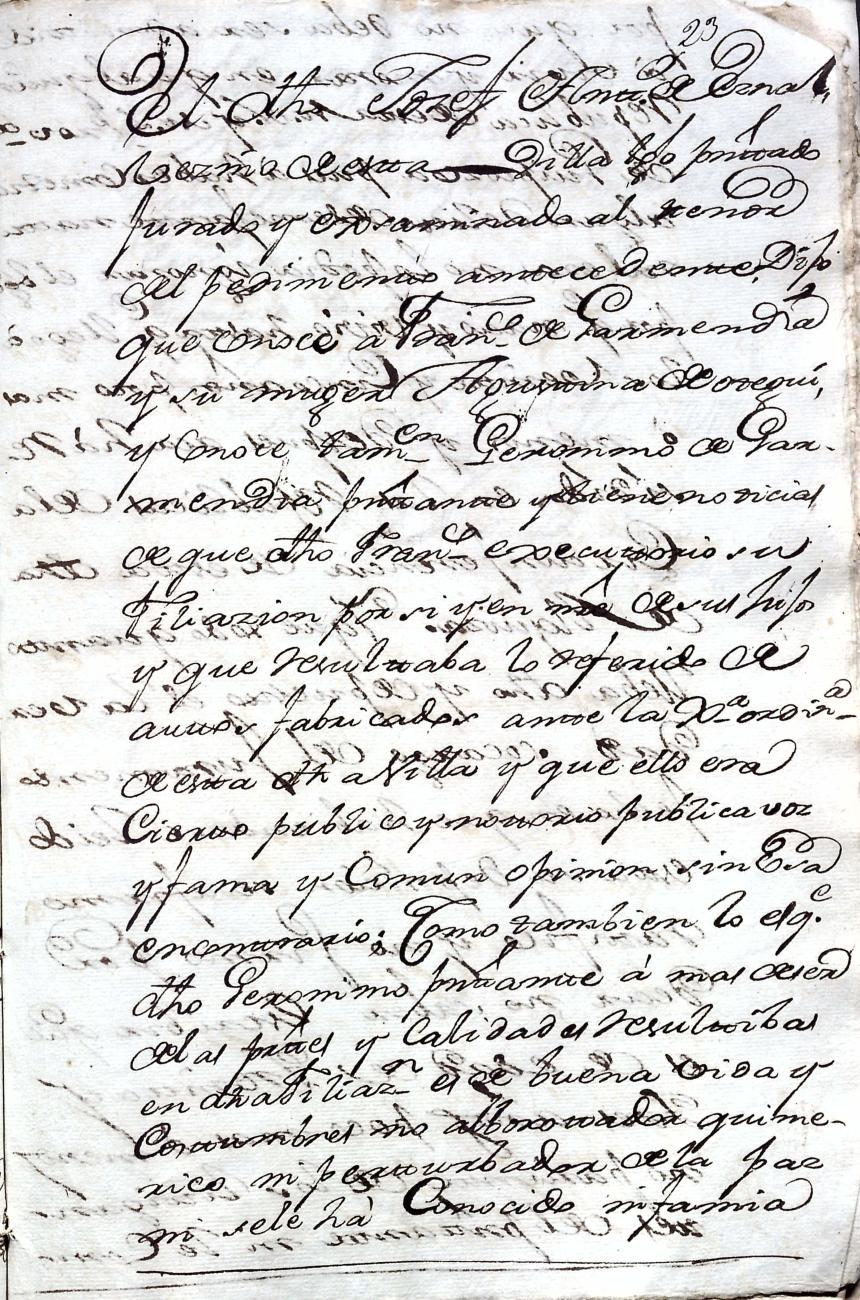 23
El dho Josef Anto. de Ernal
bezino de esta Villa tgo pntado
jurado y exsaminado al tenor
del pedimento antecedente, Dijo
que conoce à Franco. de Garmendia
y su muger Agustina de otegui,
y conoce tamen Geronimo de Gar-
mendia pntante y tiene noticias
de que dho Franco. executorio su
Filiazion por si y en nre de sus hijos
y que resultaba lo referido de
auttos fabricados ante la Xa ordinra
de esta dha Villa y que ello era
Cierto publico y notorio publica voz
y fama y Comun opinion sin Cosa
en contrario: Como tambien lo es qe.
dho Geronimo pntante à mas de ser
de las prttes y Calidades resultibas
en dha Filiazn es de buena vida y
Costumbres no alborotador quime-
rico ni perturbador de la paz
ni se le hà Conocido infamia